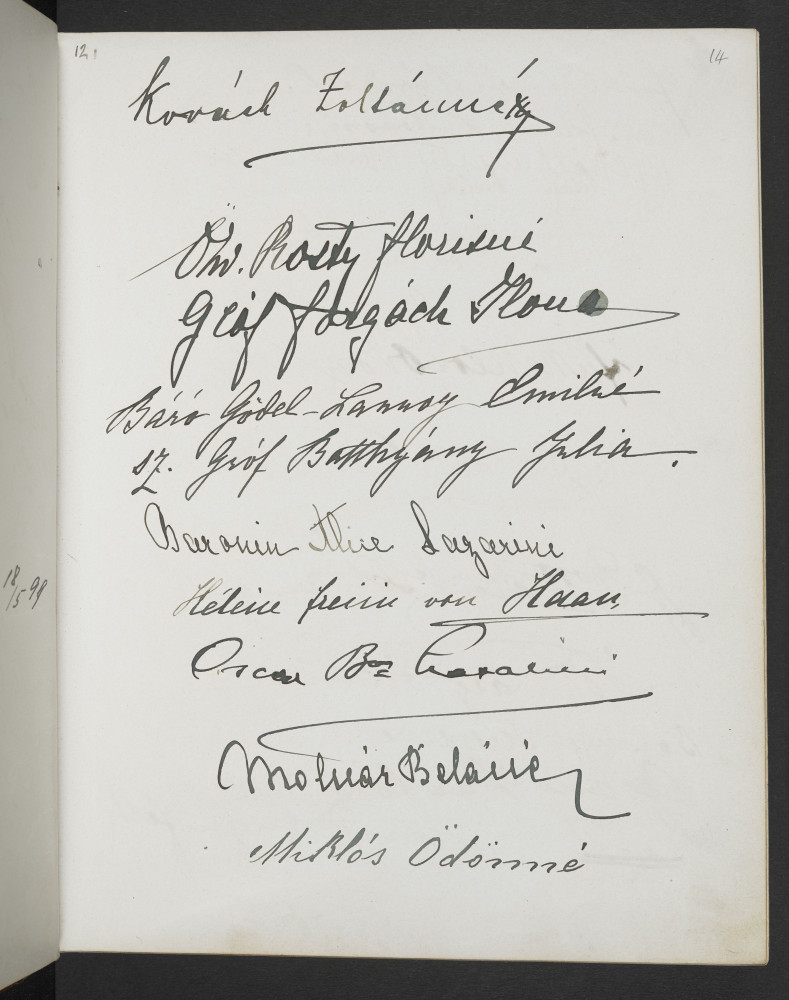 12
14
Kovách Zoltánné
Öhv. Rosty Florisné
Gróf Forgách Ilona
Báró Gödel-Lannoy Emilné
sz. Gróf Batthyány Julia.
Baronin Alice Lazarini
18/5 99
Hélène Freiin von Haan,
Oscar Bon Lazarini
Molnár Béláné
Miklós Ödönné